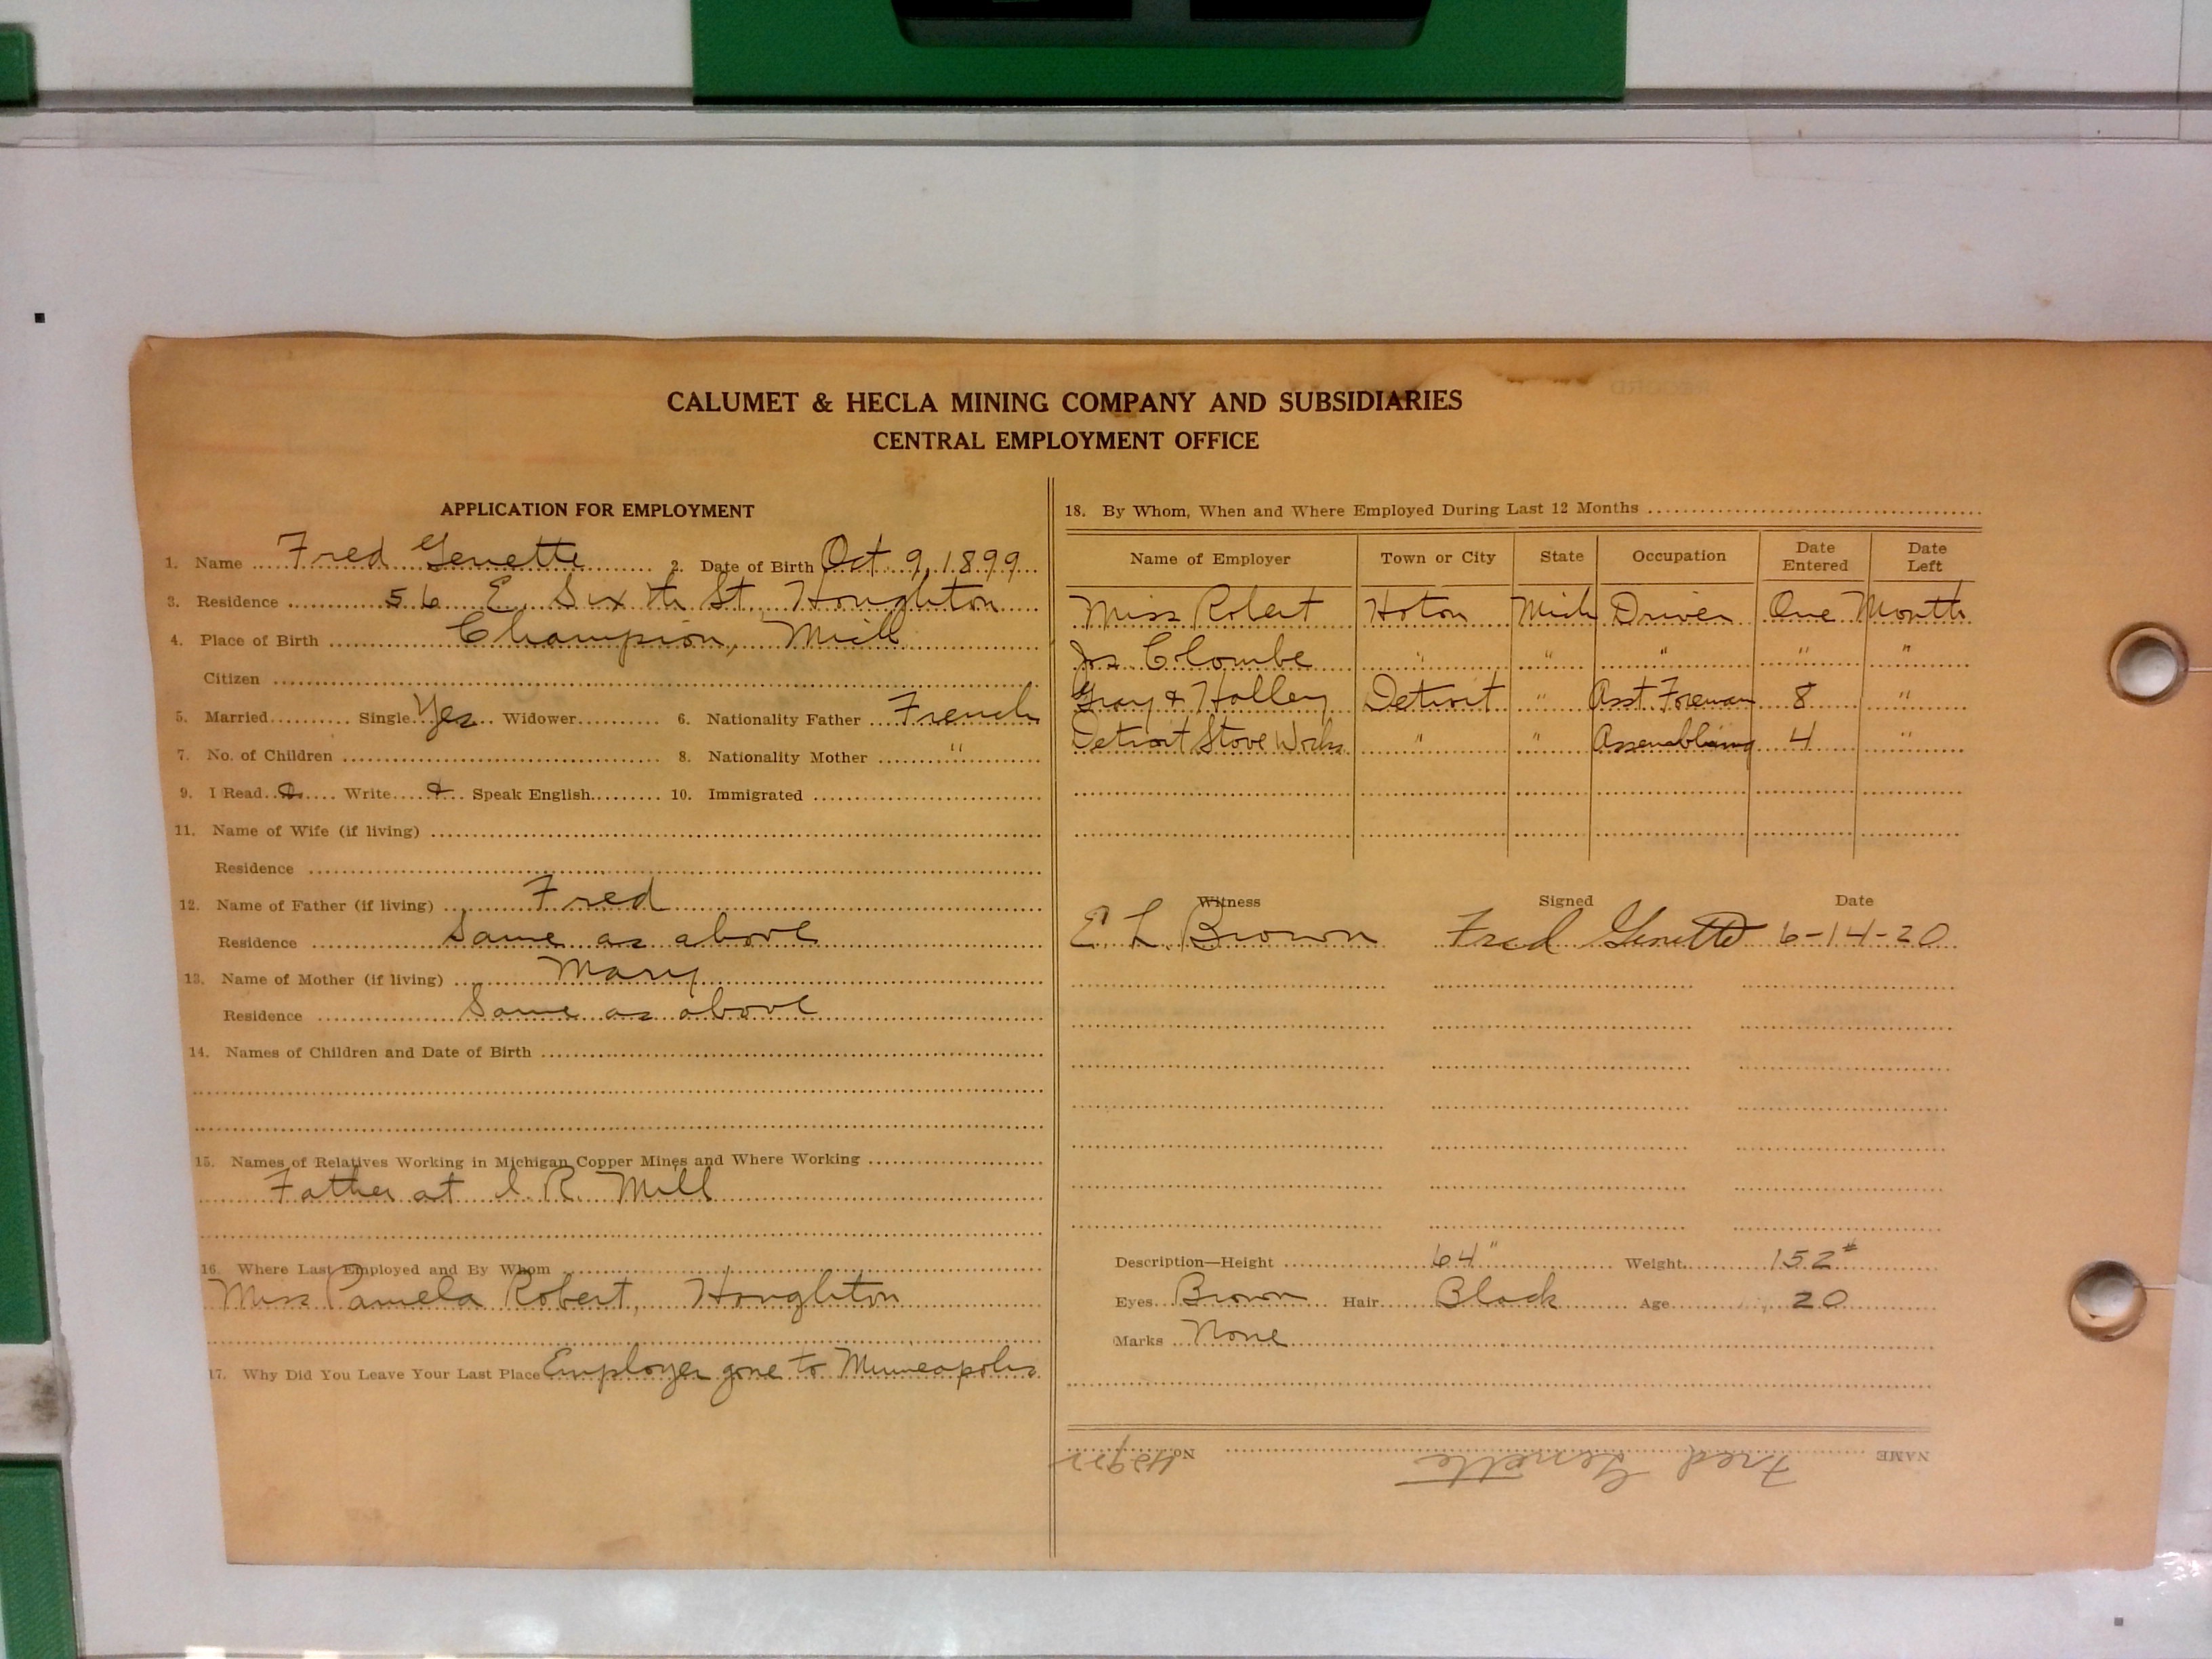 CALUMET & HECLA MINING COMPANY AND SUBSIDIARIES
CENTRAL EMPLOYMENT OFFICE
APPLICATION FOR EMPLOYMENT
1. Name Fred Genette 2. Date of Birth Oct 9, 1899
3. Residence 56 E. Sixth St. Houghton
4. Place of Birth Champion, Mich
Citizen
5. Married Single Yes Widower 6. Nationality Father French
7. No. of Children 8. Nationality Mother "
9. I Read & Write & Speak English 10. Immigrated
11. Name of Wife (if living)
Residence
12. Name of Father (if living) Fred
Residence Same as above
13. Name of Mother (if living) Mary
Residence Same as above
14. Names of Children and Date of Birth
15. Names of Relatives Working in Michigan Copper Mines and Where Working
Father at I. R. Mill
16. Where Last Employed and By Whom
Miss Pamela Robert, Houghton
17. Why Did You Leave Your Last Place Employer gone to Minneapolis
18. By Whom, When and Where Employed During Last 12 Months
Name of Employer Town or City State Occupation Date Entered Date Left
Miss Robert Hoton Mich Driver One Month
Js. Colombe " " " " "
Gray & Holley Detroit " Asst. Foreman 8 "
Detroit Stove Works " " Assembling 4 "
Witness Signed Date
E. L. Brown Fred Genette 6-14-20
Description—Height 64" Weight 152#
Eyes Brown Hair Black Age 20
Marks None
NAME Fred Genette No.